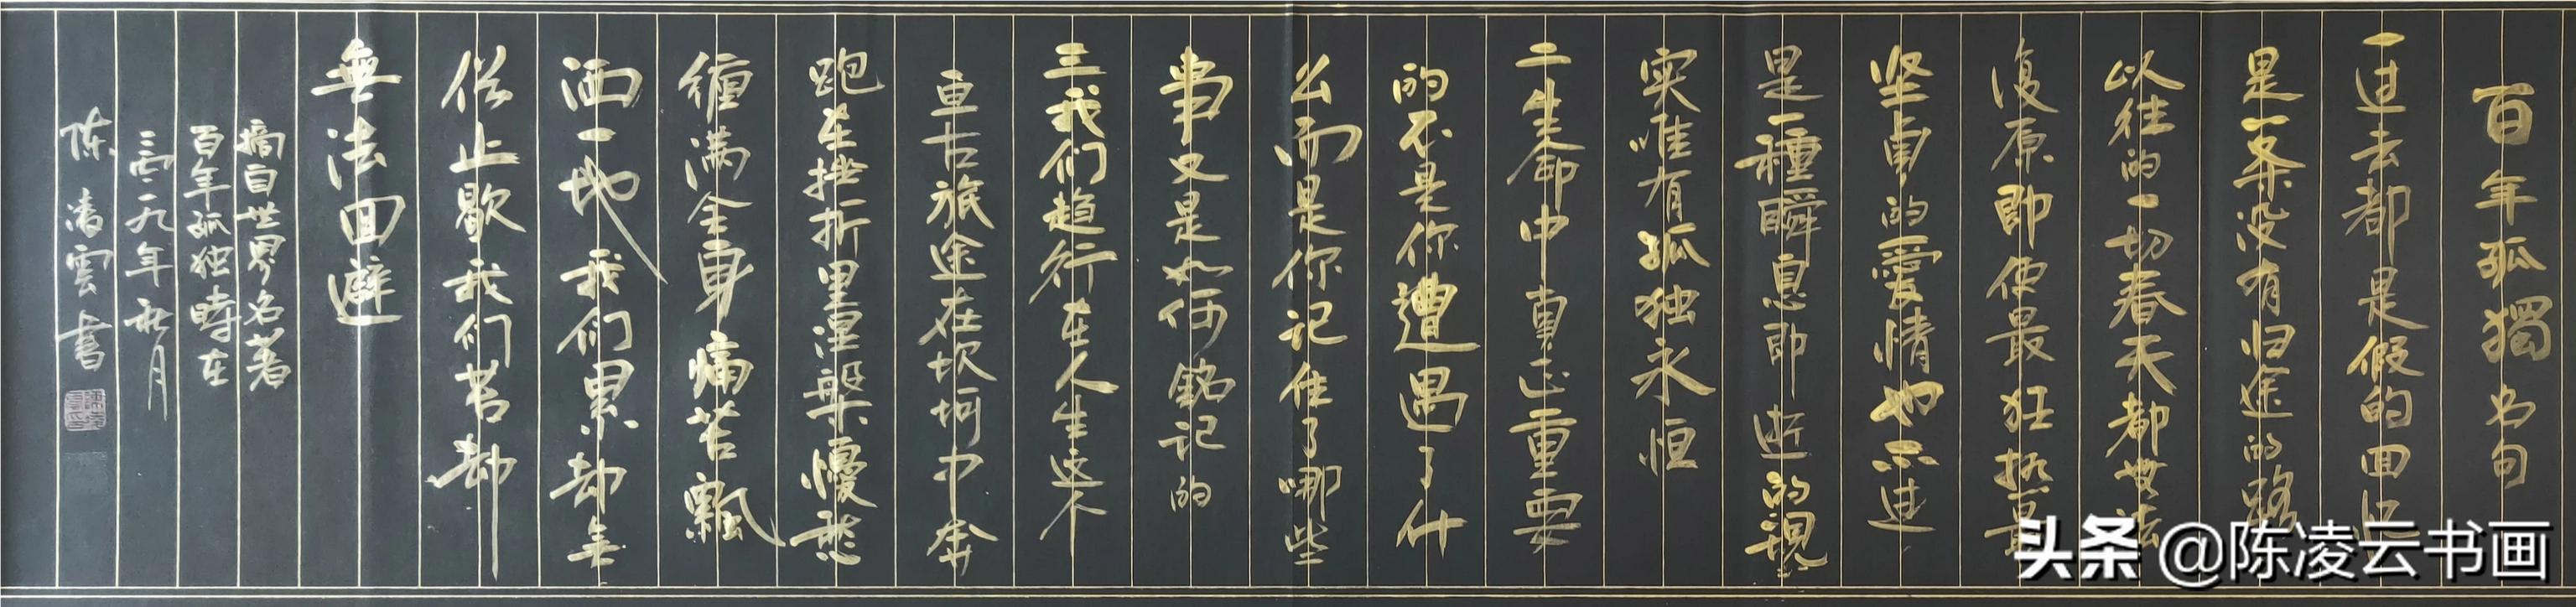 百年孤獨名句
一过去都是假的回忆
是一条没有归途的路
以往的一切春天都無法
復原即使最狂热最
坚貞的愛情也不过
是一種瞬息即逝的現
实唯有孤独永恒
二生命中真正重要
的不是你遭遇了什
么而是你记住了哪些
事又是如何銘记的
三我们趋行在人生这个
亘古旅途在坎坷中奔
跑在挫折里涅槃懮愁
缠满全身痛苦飄
洒一地我们累却無
从止歇我们苦却
無法回避
摘自世界名著
百年孤独時在
二零一九年秋月
陈凌雲書
头条 @陈凌云书画